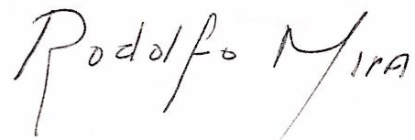 Rodolfo Mira